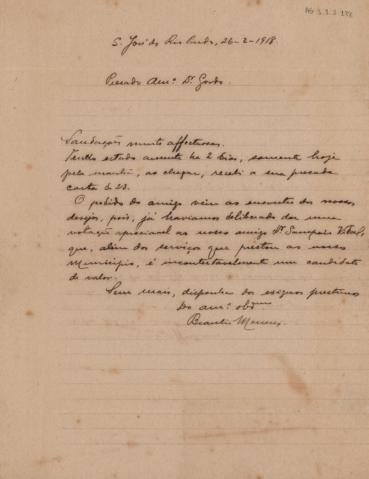 AG 3.1.2.192
S. José do Rio Pardo, 26-2-1918.
Presado Amº. Dr. Gordo.
Saudações muito affectuosas.
Tendo estado ausente ha 2 dias, somente hoje
pela manhã, ao chegar, recebi a sua presada
carta de 23.
O pedido do amigo vem ao encontro dos nossos
desejos, pois, já haviamos deliberado dar uma
votação apreciavel ao nosso amigo Dr. Sampaio Vidal,
que, alem dos serviços que prestou ao nosso
Municipio, é incontestavelmente um candidato
de valor.
Sem mais, disponha dos exiguos prestimos
Do amº. obgmo